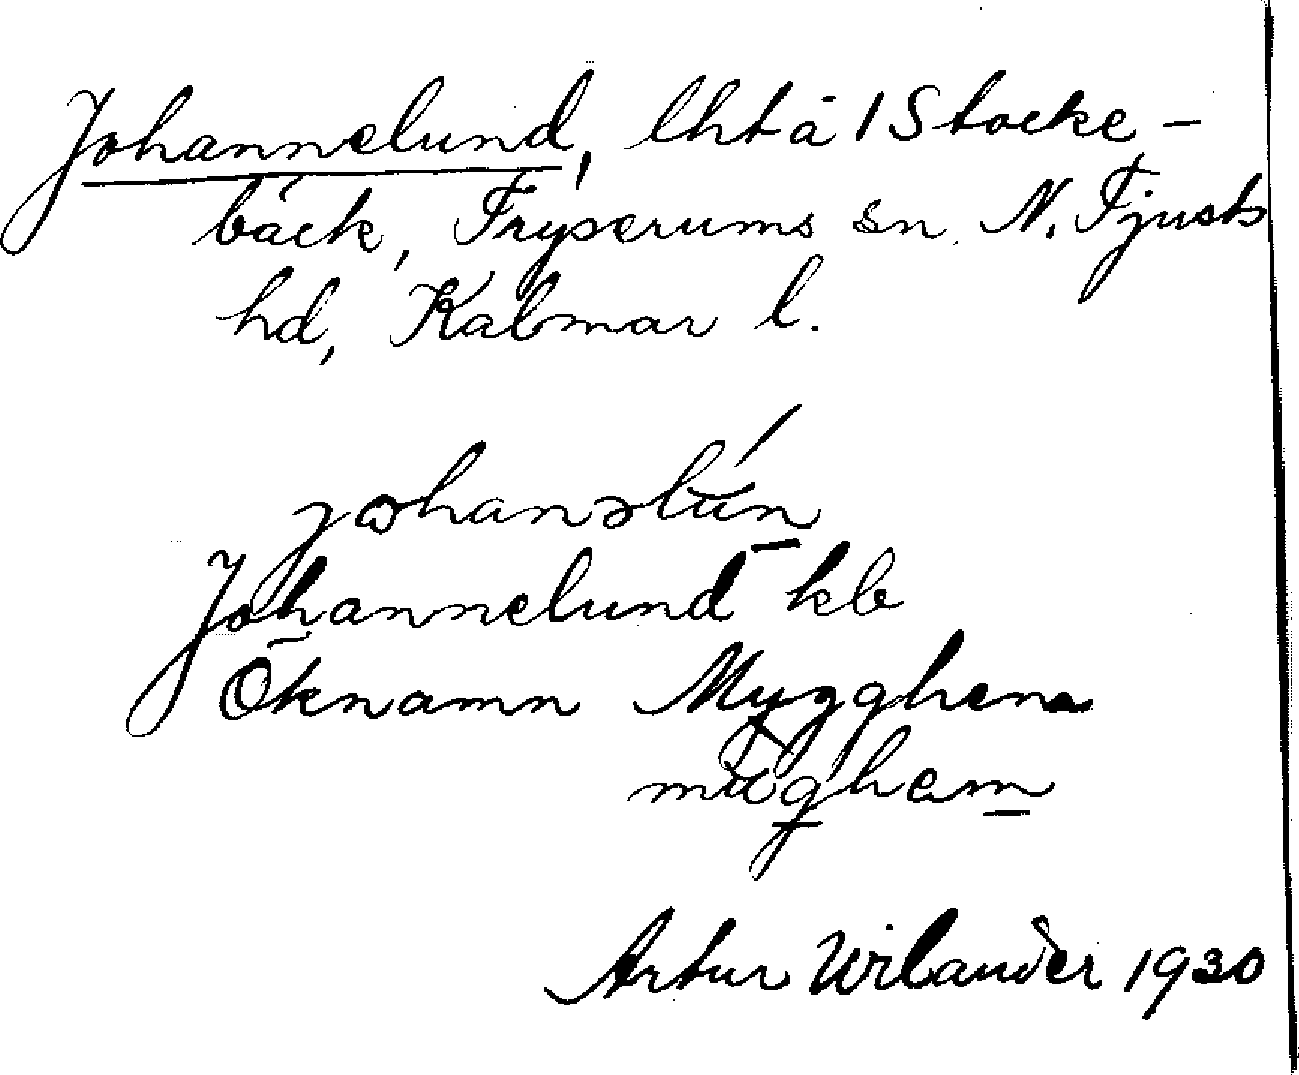 Johannelund, lht å 1 Stocke-
bäck, Fryserums sn, N. Tjusts
hd, Kalmar l.
johanəlún
Johannelund kb
Öknamn Mygghem
mug̱hem̱
Artur Wilander 1930